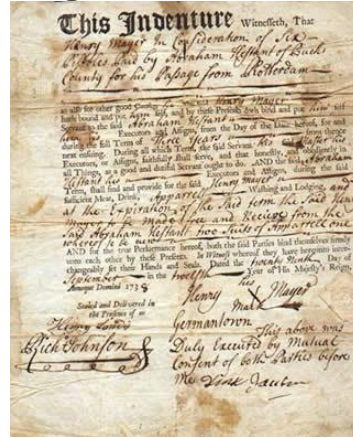 This Indenture Witnesseth, That
Henry Mayer In Consideration of Six
Pistoles Paid by Abraham Hestant of Bucks
County for his Passage from Rotterdam
as also for other good Causes he the said Henry Mayer
hath bound and put himself, and by these Presents doth bind and put himself
Servant to the said Abraham Hestant
Executors and Assigns, from the Day of the Date hereof, for and
during the full Term of Three Years from thence
next ensuing. During all which Term, the said Servant his said Master his
Executors, or Assigns, faithfully shall serve, and that honestly and obediently in
all Things, as a good and dutiful Servant ought to do. AND the said Abraham
Hestant his Executors and Assigns, during the said
Term, shall find and provide for the said Henry Mayer
sufficient Meat, Drink, Apparrell Washing and Lodging, and
at the Expiration of the Said term the Said Henry
Mayer to be made free and Receive from the
Said Abraham Hestant two Suits of Apparrell one
whereof to be new
AND for the true Performance hereof, both the said Parties bind themselves firmly
unto each other by these Presents. In Witness whereof they have hereunto inter-
changeably set their Hands and Seals. Dated the twenty Ninth Day of
September in the twelfth Year of His Majesty's Reign;
Annoque Domini 1738
his
Henry X Mayer
mark
Sealed and Delivered in
the Presence of us
Rich Johnson
Germantown
This above was
Duly Executed by Mutual
Consent of both Parties before
Me